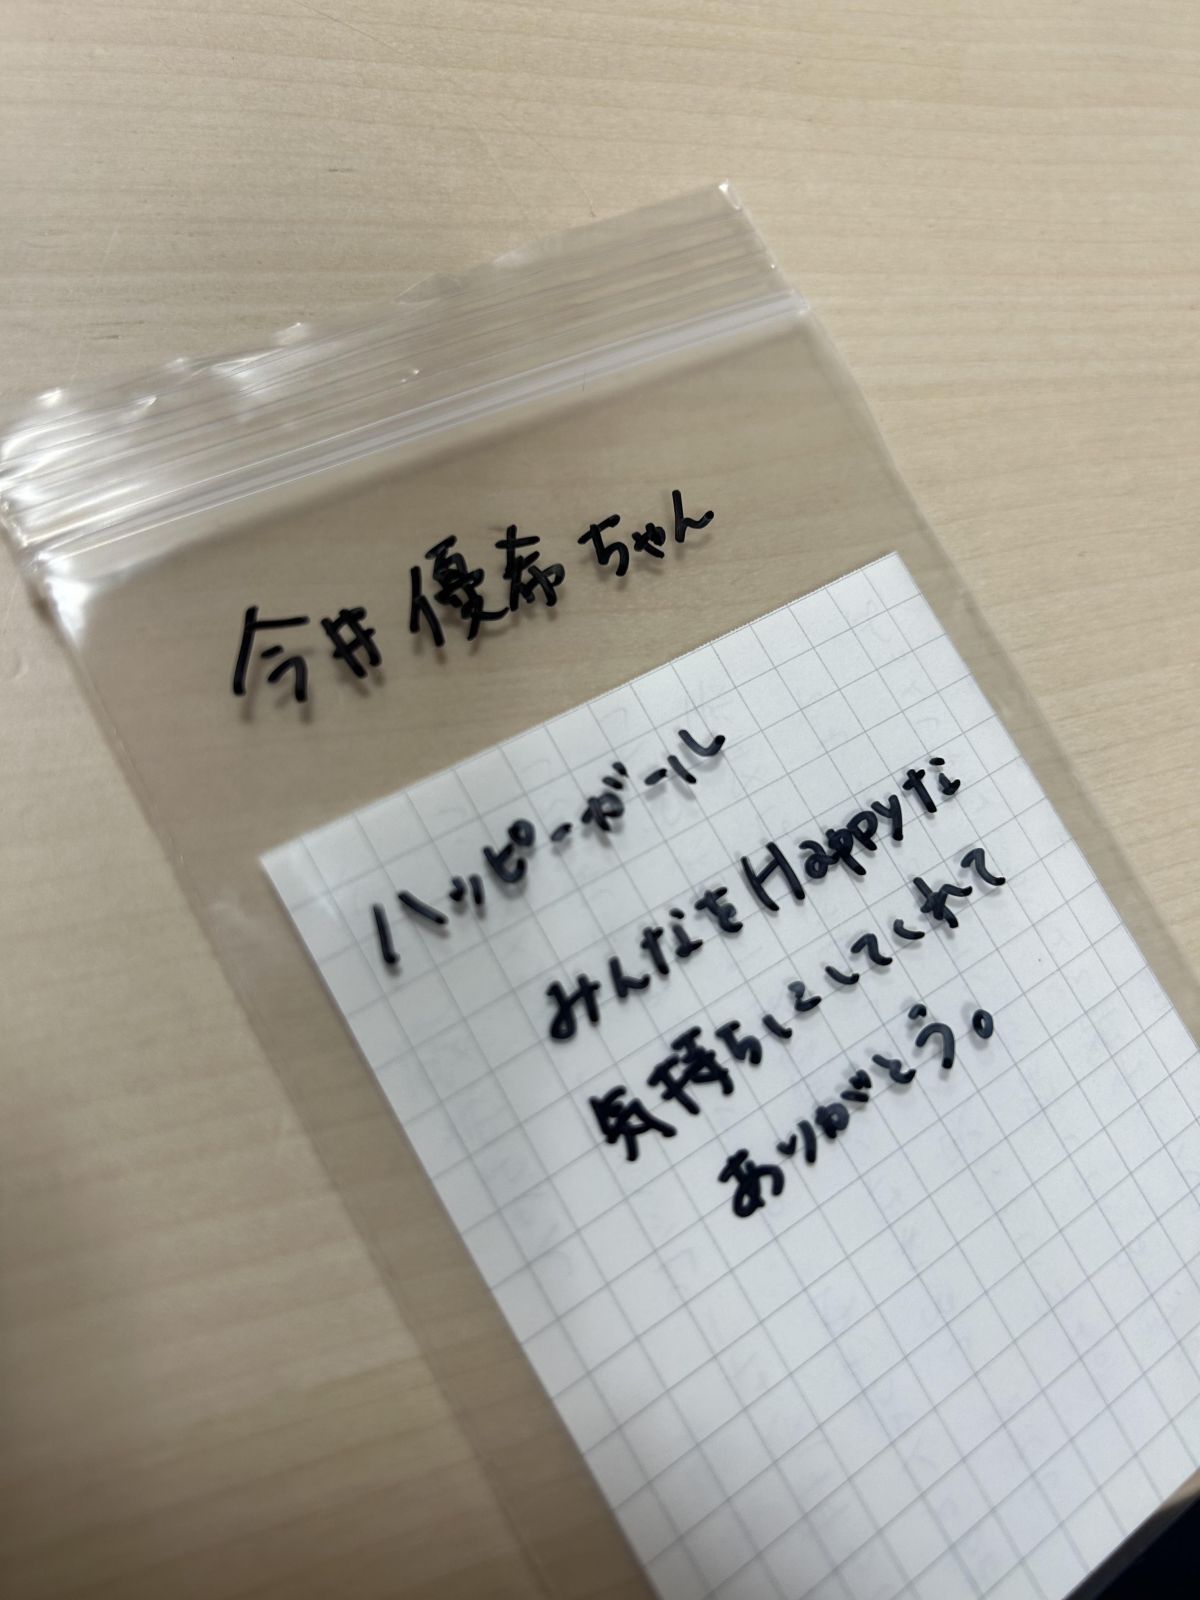 今井優奈ちゃん
ハッピーガール
みんなをHappyな
気持ちにしてくれて
ありがとう。